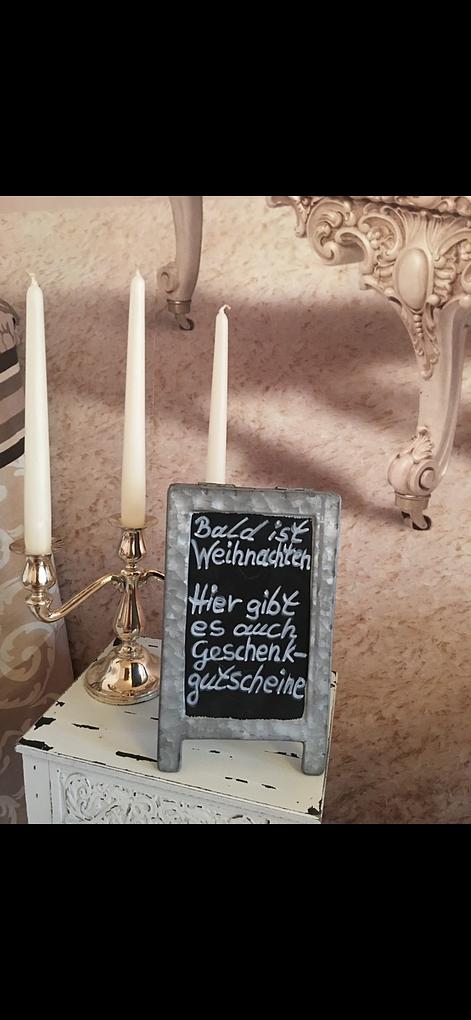 Bald ist
Weihnachten
Hier gibt
es auch
Geschenk-
gutscheine